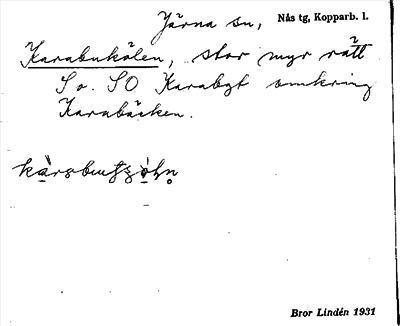 Järna sn, Nås tg, Kopparb. l.
Karabukölen, stor myr rätt
S o. SO Karabyt omkring
Karabäcken.
Bror Lindén 1931